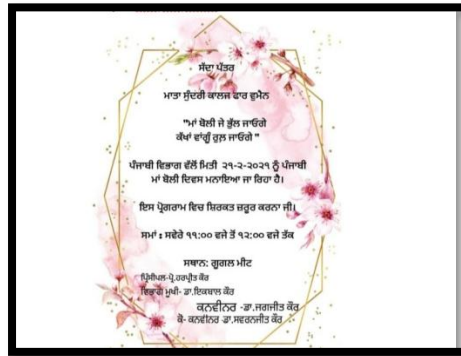 ਸੱਦਾ ਪੱਤਰ
ਮਾਤਾ ਸੁੰਦਰੀ ਕਾਲਜ ਫਾਰ ਵੁਮੈਨ
"ਮਾਂ ਬੋਲੀ ਜੇ ਭੁੱਲ ਜਾਓਗੇ
ਕੱਖਾਂ ਵਾਂਗੂੰ ਰੁਲ਼ ਜਾਓਗੇ "
ਪੰਜਾਬੀ ਵਿਭਾਗ ਵੱਲੋਂ ਮਿਤੀ ੨੧-੨-੨੦੨੧ ਨੂੰ ਪੰਜਾਬੀ
ਮਾਂ ਬੋਲੀ ਦਿਵਸ ਮਨਾਇਆ ਜਾ ਰਿਹਾ ਹੈ।
ਇਸ ਪ੍ਰੋਗਰਾਮ ਵਿਚ ਸ਼ਿਰਕਤ ਜ਼ਰੂਰ ਕਰਨਾ ਜੀ।
ਸਮਾਂ : ਸਵੇਰੇ ੧੧:੦੦ ਵਜੇ ਤੋਂ ੧੨:੦੦ ਵਜੇ ਤੱਕ
ਸਥਾਨ: ਗੂਗਲ ਮੀਟ
ਪ੍ਰਿੰਸੀਪਲ-ਪ੍ਰੋ.ਹਰਪ੍ਰੀਤ ਕੌਰ
ਵਿਭਾਗ ਮੁਖੀ- ਡਾ.ਇਕਬਾਲ ਕੌਰ
ਕਨਵੀਨਰ -ਡਾ.ਜਗਜੀਤ ਕੌਰ
ਕੋ- ਕਨਵੀਨਰ -ਡਾ.ਸਵਰਨਜੀਤ ਕੌਰ